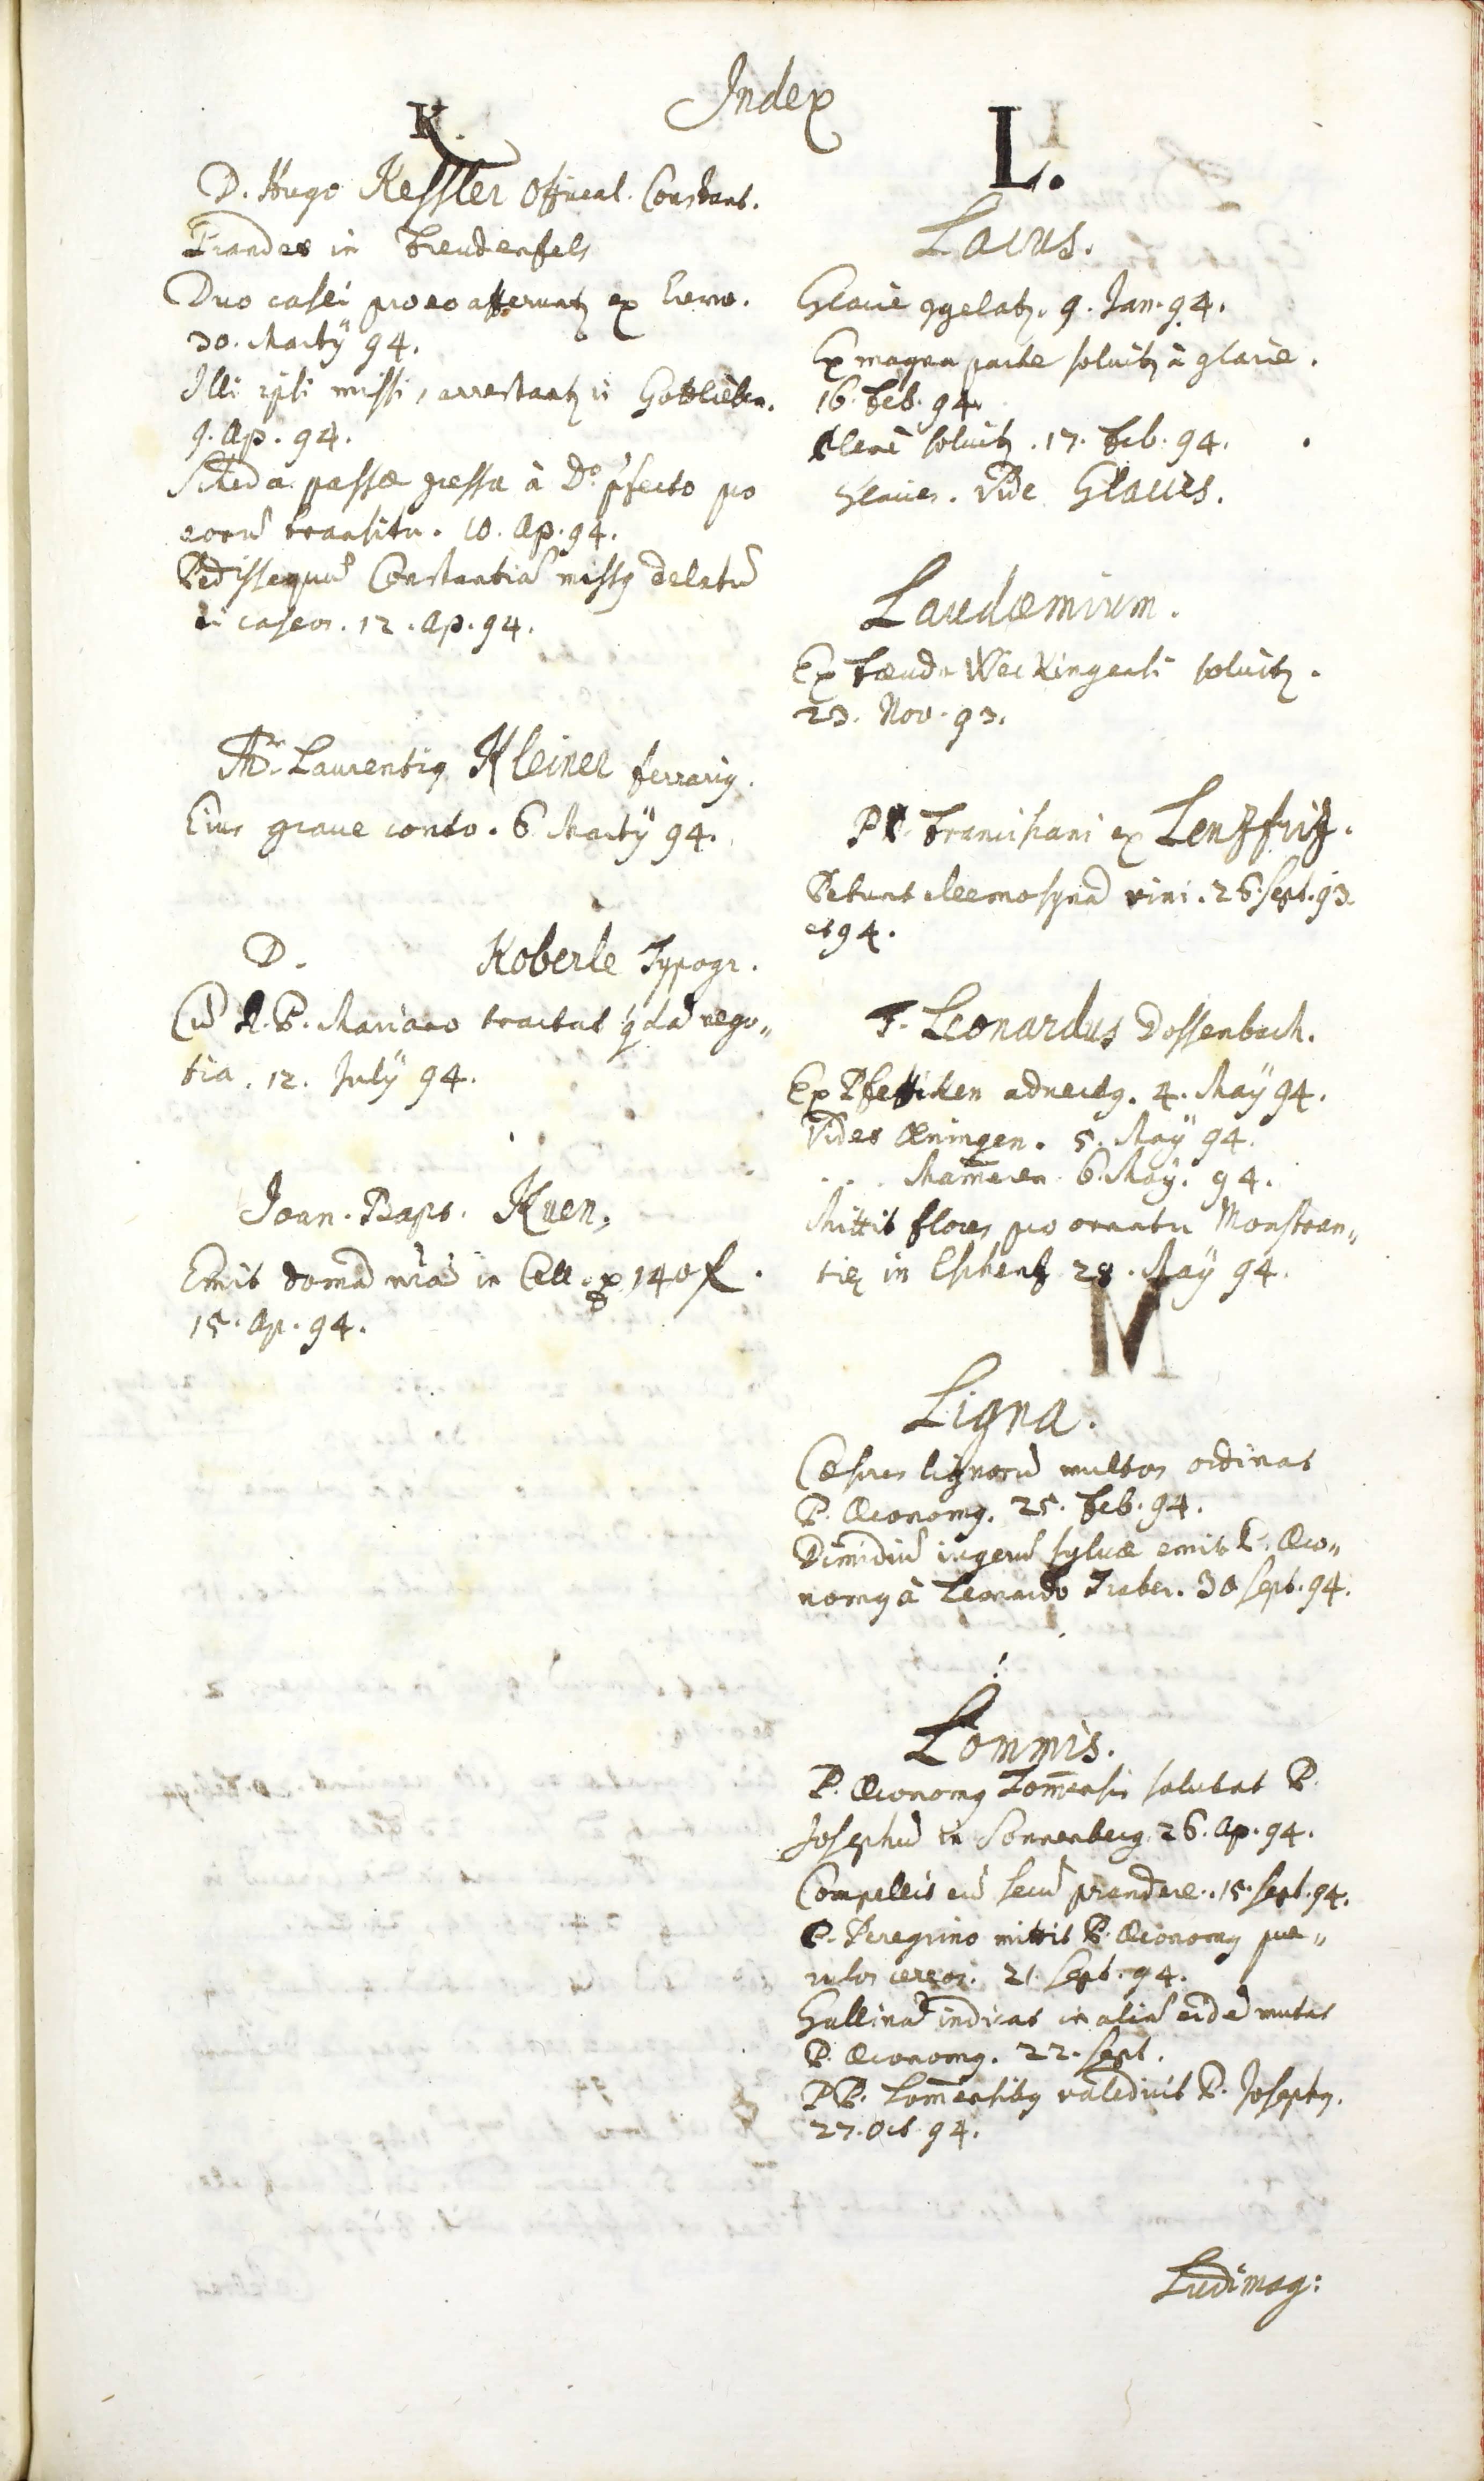 Index
K.
D. Hugo Kessler Official. Constant.
Prandet in Freudenfels
Duo casei pro eo afferuntur ex Eremo.
30. Martÿ 94.
Illi ipsi missi, arrestantur in Gottlieben.
9. Ap. 94.
Scheda passæ gressa à Do. pfecto pro
eorū transitu. 10. Ap. 94.
Pedissequū Constantiā missus delatū
ei caseos. 12. Ap. 94.
Mr. Laurentius Kleiner ferrarius.
Eius graue conto. 6 Martÿ 94.
D. Koberle Typogr.
Cū R. P. Mariano tractat quædā nego„
tia. 12. Julÿ 94.
Joan. Bapt. Kuen,
Emit domū nrā in Cell. p 140 f.
15. Ap. 94.
L.
Lacus.
Glacie 9gelatur. 9. Jan. 94.
Ex magna parte soluitur à glacie.
16. Feb. 94.
Plenè soluitur. 17. Feb. 94.
Glacies. Vide Glacies.
Laudæmium.
Ex Fæudo Weckingensi soluitur.
23. Nov. 93.
PP. Franciscani ex Lenzfrid.
Petunt eleemosynā vini. 26. Sept. 93.
et 94.
F. Leonardus Dossenbach.
Ex Pfeffiken aduectus. 4. Maÿ 94.
Videt Œningen. 5. Maÿ 94.
. . . Mam̄eren 6. Maÿ. 94.
Mittit flores pro ornatu Monstran„
tiæ in Eschentz 28. Maÿ 94.
M
Ligna.
Cæsores lignorū multos ordinat
P. Œconomus. 25. Feb. 94.
Dimidiū iugerū syluæ emit P. Œco„
nomus à Leonardo Traber. 30 Sept. 94.
Lommis.
P. Œconomus Lom̄ensis salutat P.
Josephū in Sonnenberg 26. Ap. 94.
Compellit eū secū prandere. 15. Sept. 94.
P. Peregrino mittit P. Œconomus pue„
rulos cereos. 21. Sept. 94.
Gallinā indicat in aliā eidē mutat
P. Œconomus. 22. Sept.
PP. Lom̄ensibus valedicit P. Josephus.
27. Oct. 94.
Ludimag: